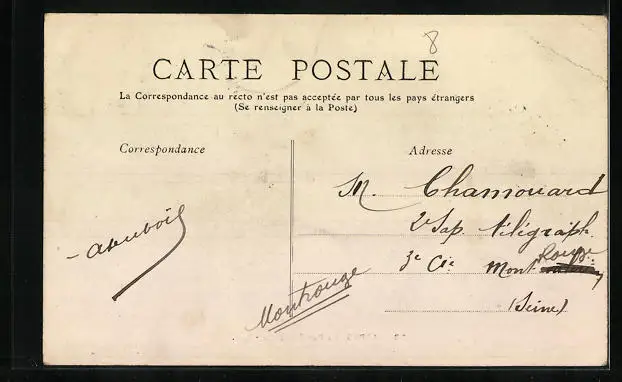 8
CARTE POSTALE
La Correspondance au recto n'est pas acceptée par tous les pays étrangers
(Se renseigner à la Poste)
Correspondance
Adresse
M. Chamouard
2e Sap. télégraph.
3e Cie Mont Rouge
(Seine)
Montrouge